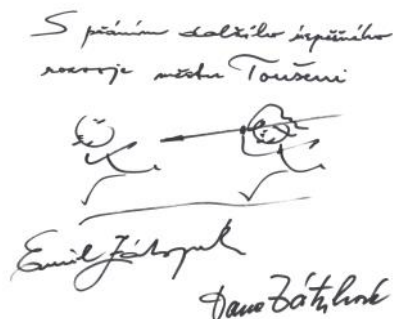 S přáním dalšího úspěšného
rozvoje městu Toušeni
Emil Zátopek
Dana Zátopková